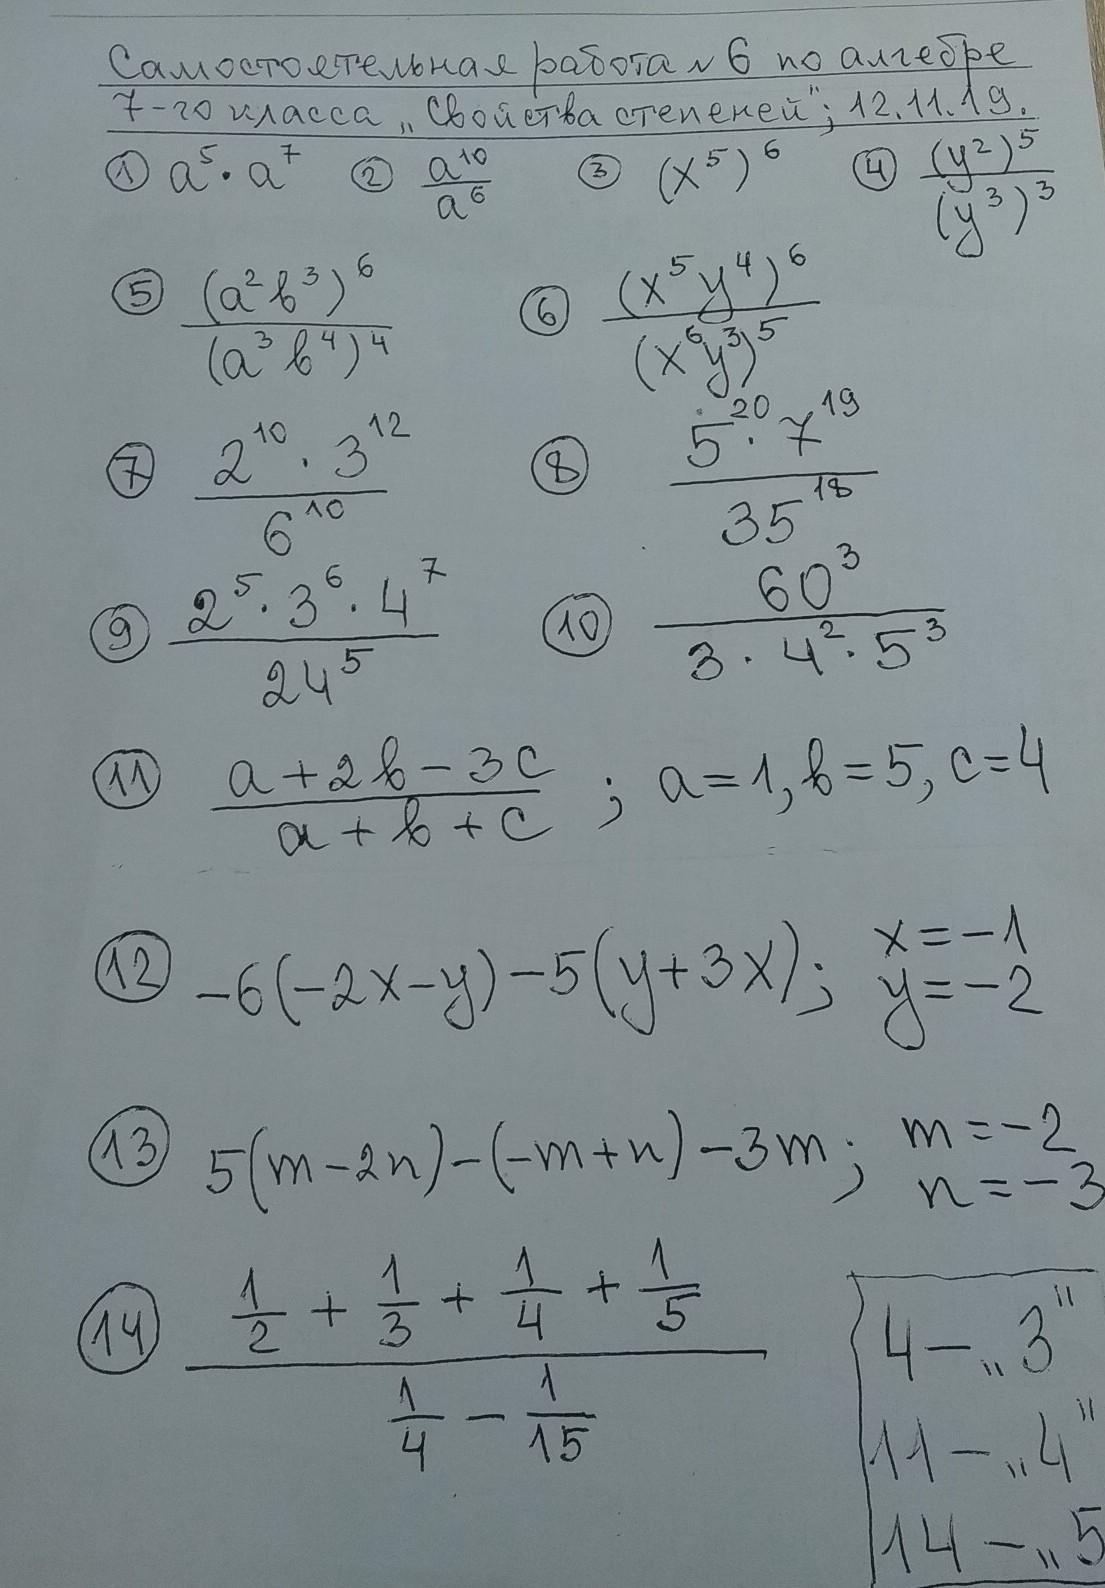 Самостоятельная работа №6 по алгебре
7-го класса „Свойства степеней“; 12.11.19.
① a⁵ · a⁷ ② a¹⁰/a⁶ ③ (x⁵)⁶ ④ (y²)⁵/(y³)³
⑤ (a²b³)⁶/(a³b⁴)⁴ ⑥ (x⁵y⁴)⁶/(x⁶y³)⁵
⑦ 2¹⁰ · 3¹²/6¹⁰ ⑧ 5²⁰ · 7¹⁹/35¹⁸
⑨ 2⁵ · 3⁶ · 4⁷/24⁵ ⑩ 60³/3 · 4² · 5³
⑪ a+2b-3c/a+b+c ; a=1, b=5, c=4
⑫ -6(-2x-y)-5(y+3x); x=-1
y=-2
⑬ 5(m-2n)-(-m+n)-3m; m=-2
n=-3
⑭ 1/2 + 1/3 + 1/4 + 1/5 / 1/4 - 1/15
4-„3“
11-„4“
14-„5